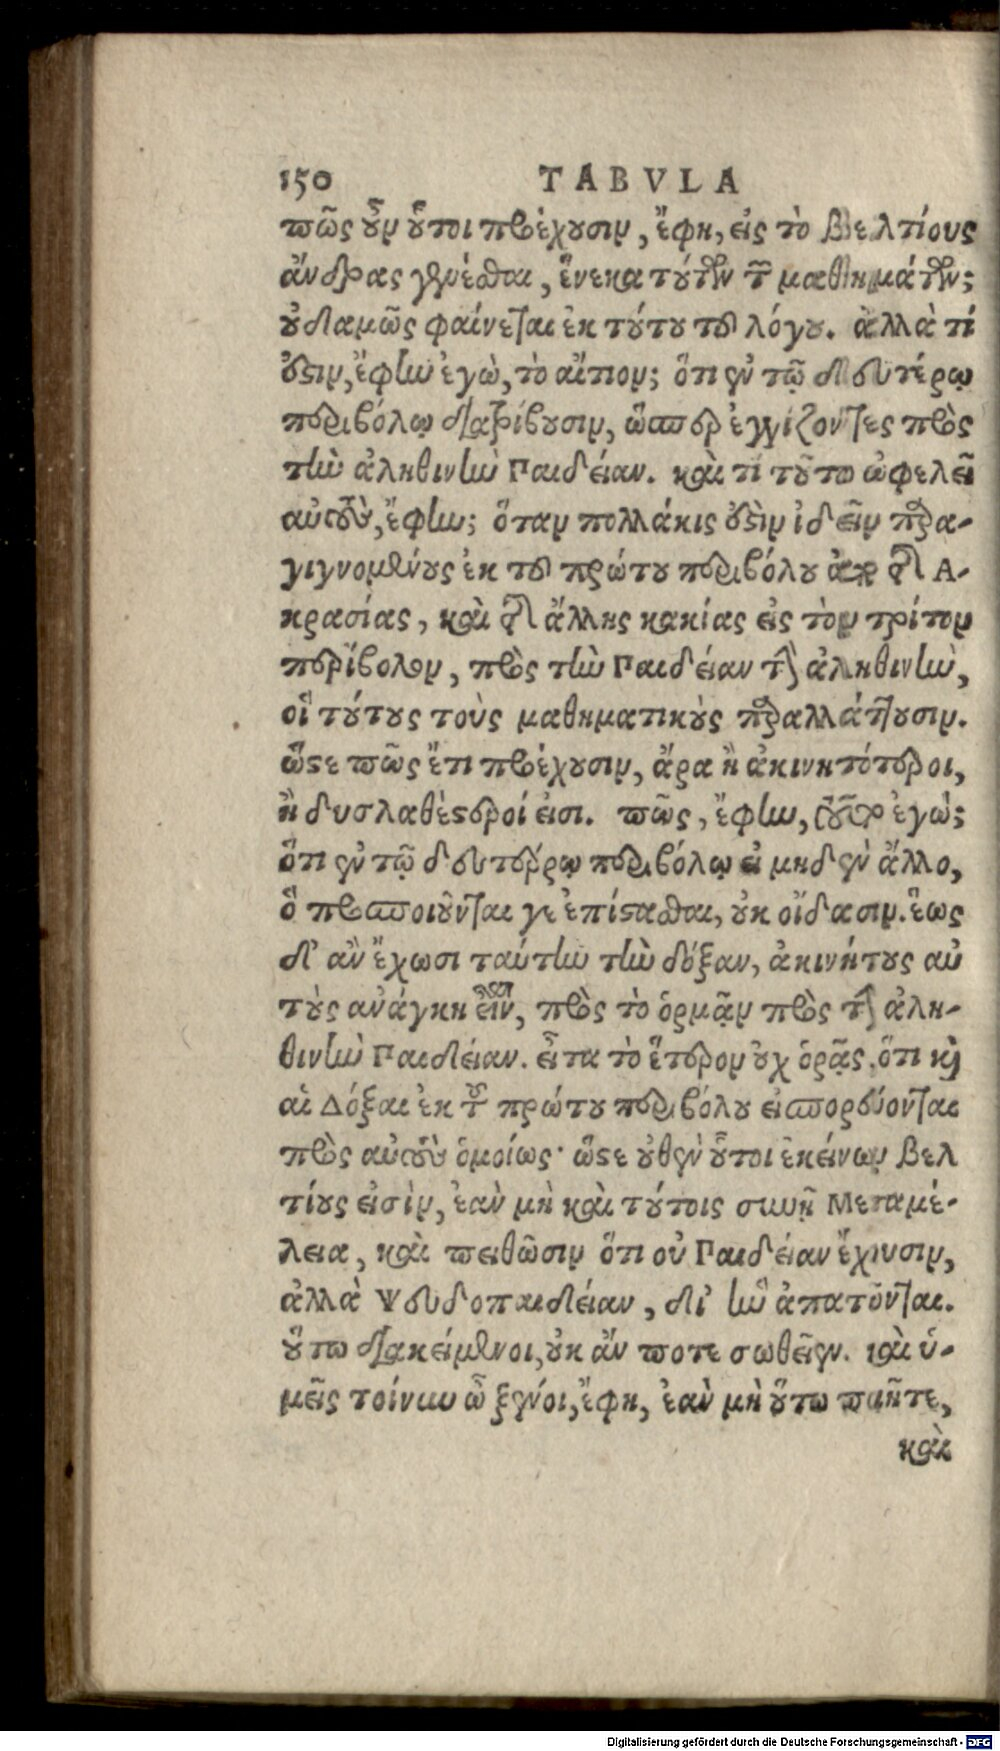 150 TABVLA
πῶς οὖν οὗτοι προέχουσιν, ἔφη, εἰς τὸ βελτίους
ἄνδρας γενέσθαι, ἕνεκα τούτων τῶν μαθημάτων;
οὐδαμῶς φαίνεται ἐκ τούτου τοῦ λόγου. ἀλλὰ τί
ὅστιν, ἔφην ἐγὼ, τὸ αἴτιον; ὅτι ἐν τῷ δευτέρῳ
περιβόλῳ διατρίβουσιν, ὥσπερ ἐγγίζοντες πρὸς
τὴν ἀληθινὴν Παιδείαν. καὶ τί τοῦτο ὠφελεῖ
αὐτοὺς, ἔφην; ὅταν πολλάκις ὅστιν ἰδεῖν παρα-
γιγνομένους ἐκ τοῦ πρώτου περιβόλου ἀπὸ τῆς Ἀ-
κρασίας, καὶ τῆς ἄλλης κακίας εἰς τὸν τρίτον
περίβολον, πρὸς τὴν Παιδείαν τὴν ἀληθινὴν,
οἳ τούτους τοὺς μαθηματικοὺς παραλλάττουσιν.
ὥστε πῶς ἔτι προέχουσιν, ἄρα ἢ ἀκινητότεροι,
ἢ δυσλαθέστεροί εἰσι. πῶς, ἔφην, τοῦτο ἐγώ;
ὅτι ἐν τῷ δευτέρῳ περιβόλῳ εἰ μηδὲν ἄλλο,
ὃ προσποιοῦνται γε ἐπίστασθαι, οὐκ οἴδασιν. ἕως
δ' ἂν ἔχωσι ταύτην τὴν δόξαν, ἀκινήτους αὐ
τοὺς ἀνάγκη εἶναι, πρὸς τὸ ὁρμᾷν πρὸς τὴν ἀλη-
θινὴν Παιδείαν. εἶτα τὸ ἕτερον οὐχ ὁρᾷς, ὅτι καὶ
αἱ Δόξαι ἐκ τοῦ πρώτου περιβόλου εἰσπορεύονται
πρὸς αὐτοὺς ὁμοίως· ὥστε οὐθὲν οὗτοι ἐκείνων βελ
τίους εἰσὶν, ἐὰν μὴ καὶ τούτοις συνῇ Μεταμέ-
λεια, καὶ πειθῶσιν ὅτι οὐ Παιδείαν ἔχουσιν,
ἀλλὰ Ψευδοπαιδείαν, δι' ἣν ἀπατῶνται.
οὕτω διακείμενοι, οὐκ ἄν ποτε σωθεῖεν. καὶ ὑ-
μεῖς τοίνυν ὦ ξένοι, ἔφη, ἐὰν μὴ οὕτω ποιῆτε,
καὶ
Digitalisierung gefördert durch die Deutsche Forschungsgemeinschaft - DFG